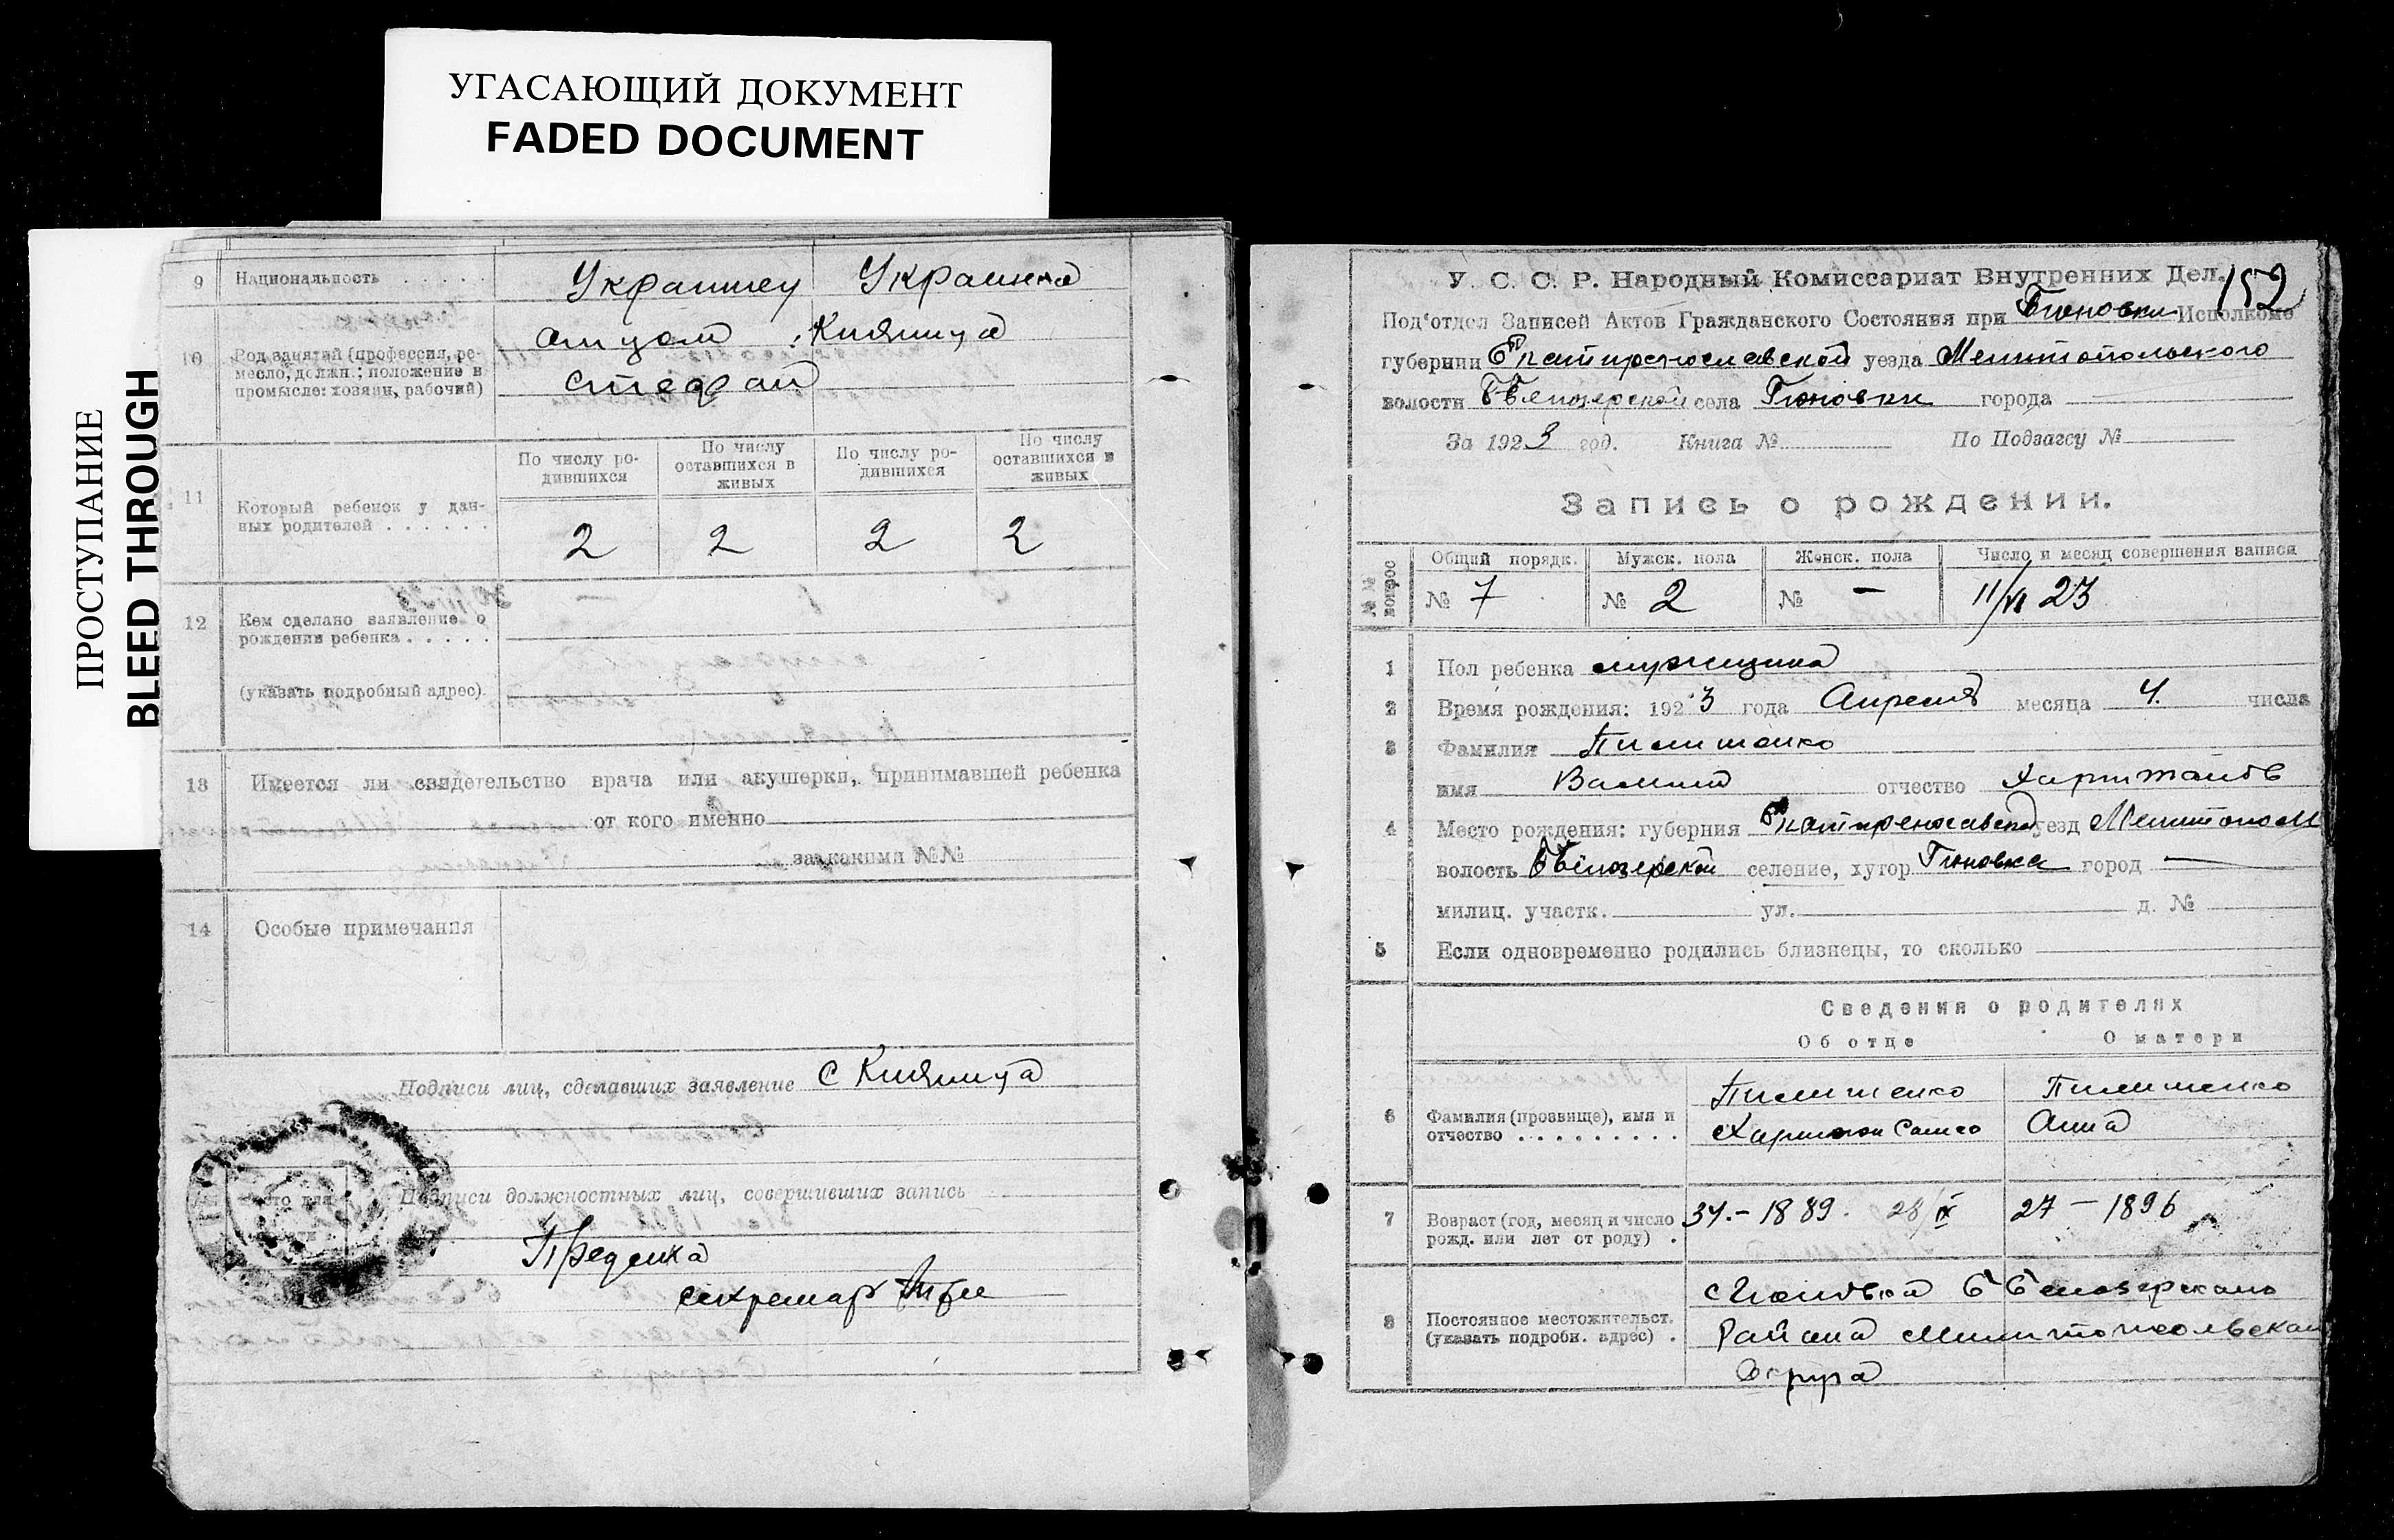 УГАСАЮЩИЙ ДОКУМЕНТ
FADED DOCUMENT
ПРОСТУПАНИЕ
BLEED THROUGH
9 Национальность Украинец Украинка
10 Род занятий (профессия, ре-
месло, должн.; положение в
промысле: хозяин, рабочий)
отцом Княница
Стефан
11 Который ребенок у дан-
ных родителей
По числу ро-
дившихся
По числу
оставшихся в
живых
По числу ро-
дившихся
По числу
оставшихся в
живых
2 2 2 2
12 Кем сделано заявление о
рождении ребенка
(указать подробный адрес)
13 Имеется ли свидетельство врача или акушерки, принимавшей ребенка
от кого именно
за какими №№
14 Особые примечания
Подписи лиц, сделавших заявление С Княница
Подписи должностных лиц, совершивших запись
секретарь
У. С. С. Р. Народный Комиссариат Внутренних Дел. 152
Под'отдел Записей Актов Гражданского Состояния при Гюновки Исполкоме
губернии Екатиринославской уезда Мелитопольского
волости села Гюновки города
За 1923 год. Книга № По Подзагсу №
Запись о рождении.
№№ вопрос
Общий порядк. Мужск. пола Женск. пола Число и месяц совершения записи
№ 7 № 2 № — 11/VI 23
1 Пол ребенка мужщина
2 Время рождения: 1923 года Апреля месяца 4. числа
3 Фамилия Пилипенко
имя отчество
4 Место рождения: губерния уезд Мелитопол
волость селение, хутор Гюновка город —
милиц. участк. ул. д. №
5 Если одновременно родились близнецы, то сколько
Сведения о родителях
Об отце О матери
6 Фамилия (прозвище), имя и
отчество
Пилипенко Пилипенко
Харитон Анна
7 Возраст (год, месяц и число
рожд. или лет от роду)
34.-1889. 28/IX 27 — 1896
8 Постоянное местожительст.
(указать подробн. адрес)
с Гюновка Б Белозерскаго
Района Мелитопольскаго
Округа